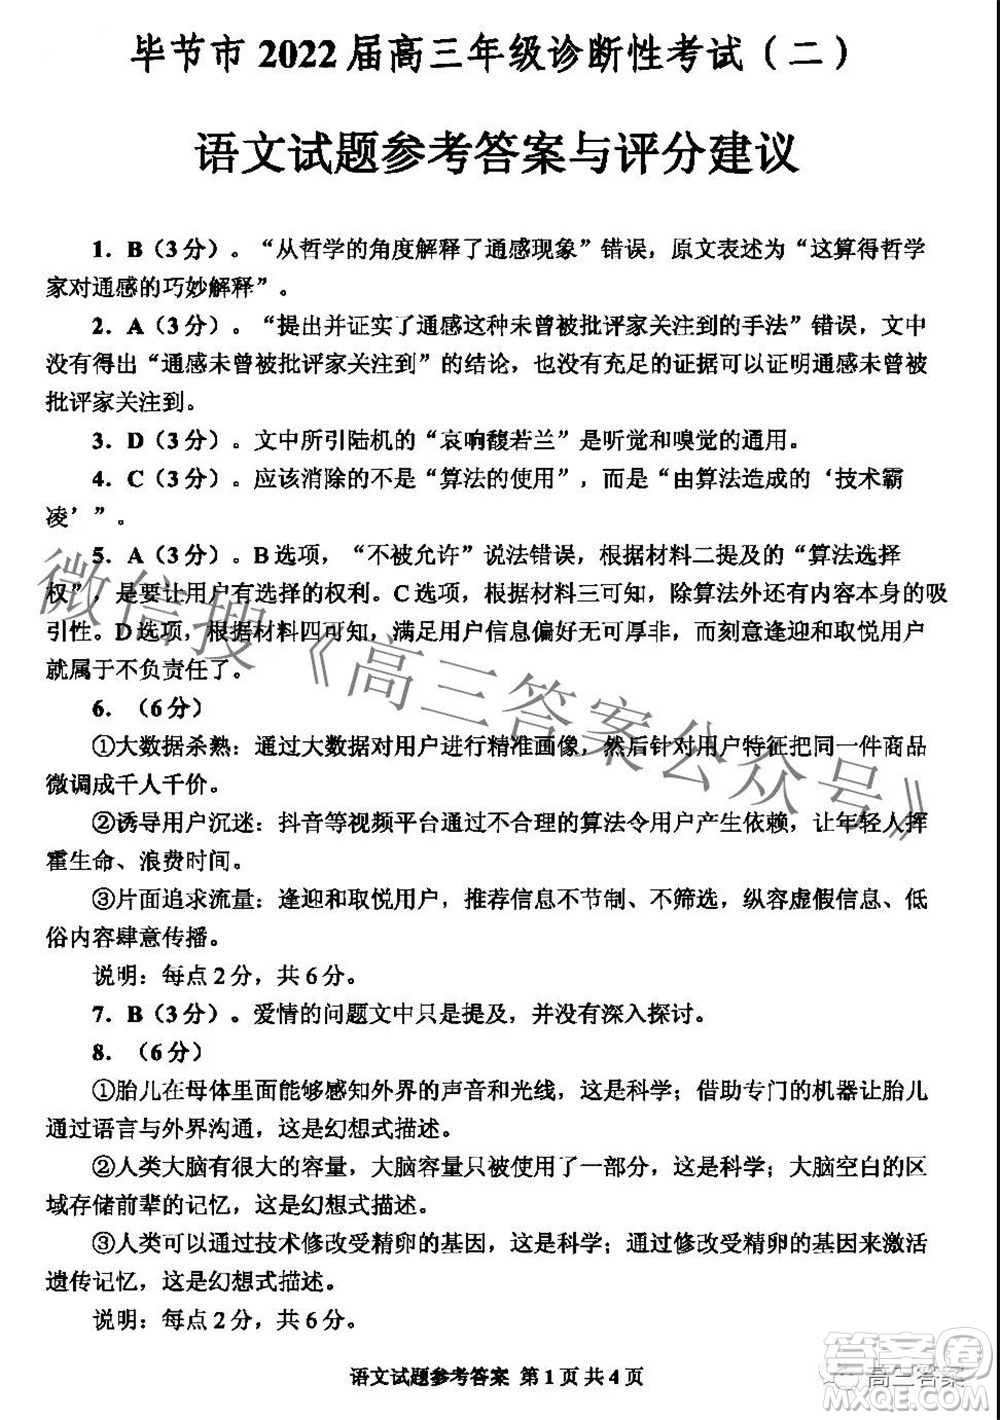 毕节市 2022 届高三年级诊断性考试（二）
语文试题参考答案与评分建议
1．B（3分）。“从哲学的角度解释了通感现象”错误，原文表述为“这算得哲学
家对通感的巧妙解释”。
2．A（3分）。“提出并证实了通感这种未曾被批评家关注到的手法”错误，文中
没有得出“通感未曾被批评家关注到”的结论，也没有充足的证据可以证明通感未曾被
批评家关注到。
3．D（3分）。文中所引陆机的“哀响馥若兰”是听觉和嗅觉的通用。
4．C（3分）。应该消除的不是“算法的使用”，而是“由算法造成的‘技术霸
凌’”。
5．A（3分）。B选项，“不被允许”说法错误，根据材料二提及的“算法选择
权”，是要让用户有选择的权利。C选项，根据材料三可知，除算法外还有内容本身的吸
引性。D选项，根据材料四可知，满足用户信息偏好无可厚非，而刻意逢迎和取悦用户
就属于不负责任了。
6．（6分）
①大数据杀熟：通过大数据对用户进行精准画像，然后针对用户特征把同一件商品
微调成千人千价。
②诱导用户沉迷：抖音等视频平台通过不合理的算法令用户产生依赖，让年轻人挥
霍生命、浪费时间。
③片面追求流量：逢迎和取悦用户，推荐信息不节制、不筛选，纵容虚假信息、低
俗内容肆意传播。
说明：每点2分，共6分。
7．B（3分）。爱情的问题文中只是提及，并没有深入探讨。
8．（6分）
①胎儿在母体里面能够感知外界的声音和光线，这是科学；借助专门的机器让胎儿
通过语言与外界沟通，这是幻想式描述。
②人类大脑有很大的容量，大脑容量只被使用了一部分，这是科学；大脑空白的区
域存储前辈的记忆，这是幻想式描述。
③人类可以通过技术修改受精卵的基因，这是科学；通过修改受精卵的基因来激活
遗传记忆，这是幻想式描述。
说明：每点2分，共6分。
语文试题参考答案 第1页共4页
微信搜《高三答案公众号》
高三答案
答案圈
MXQE.COM